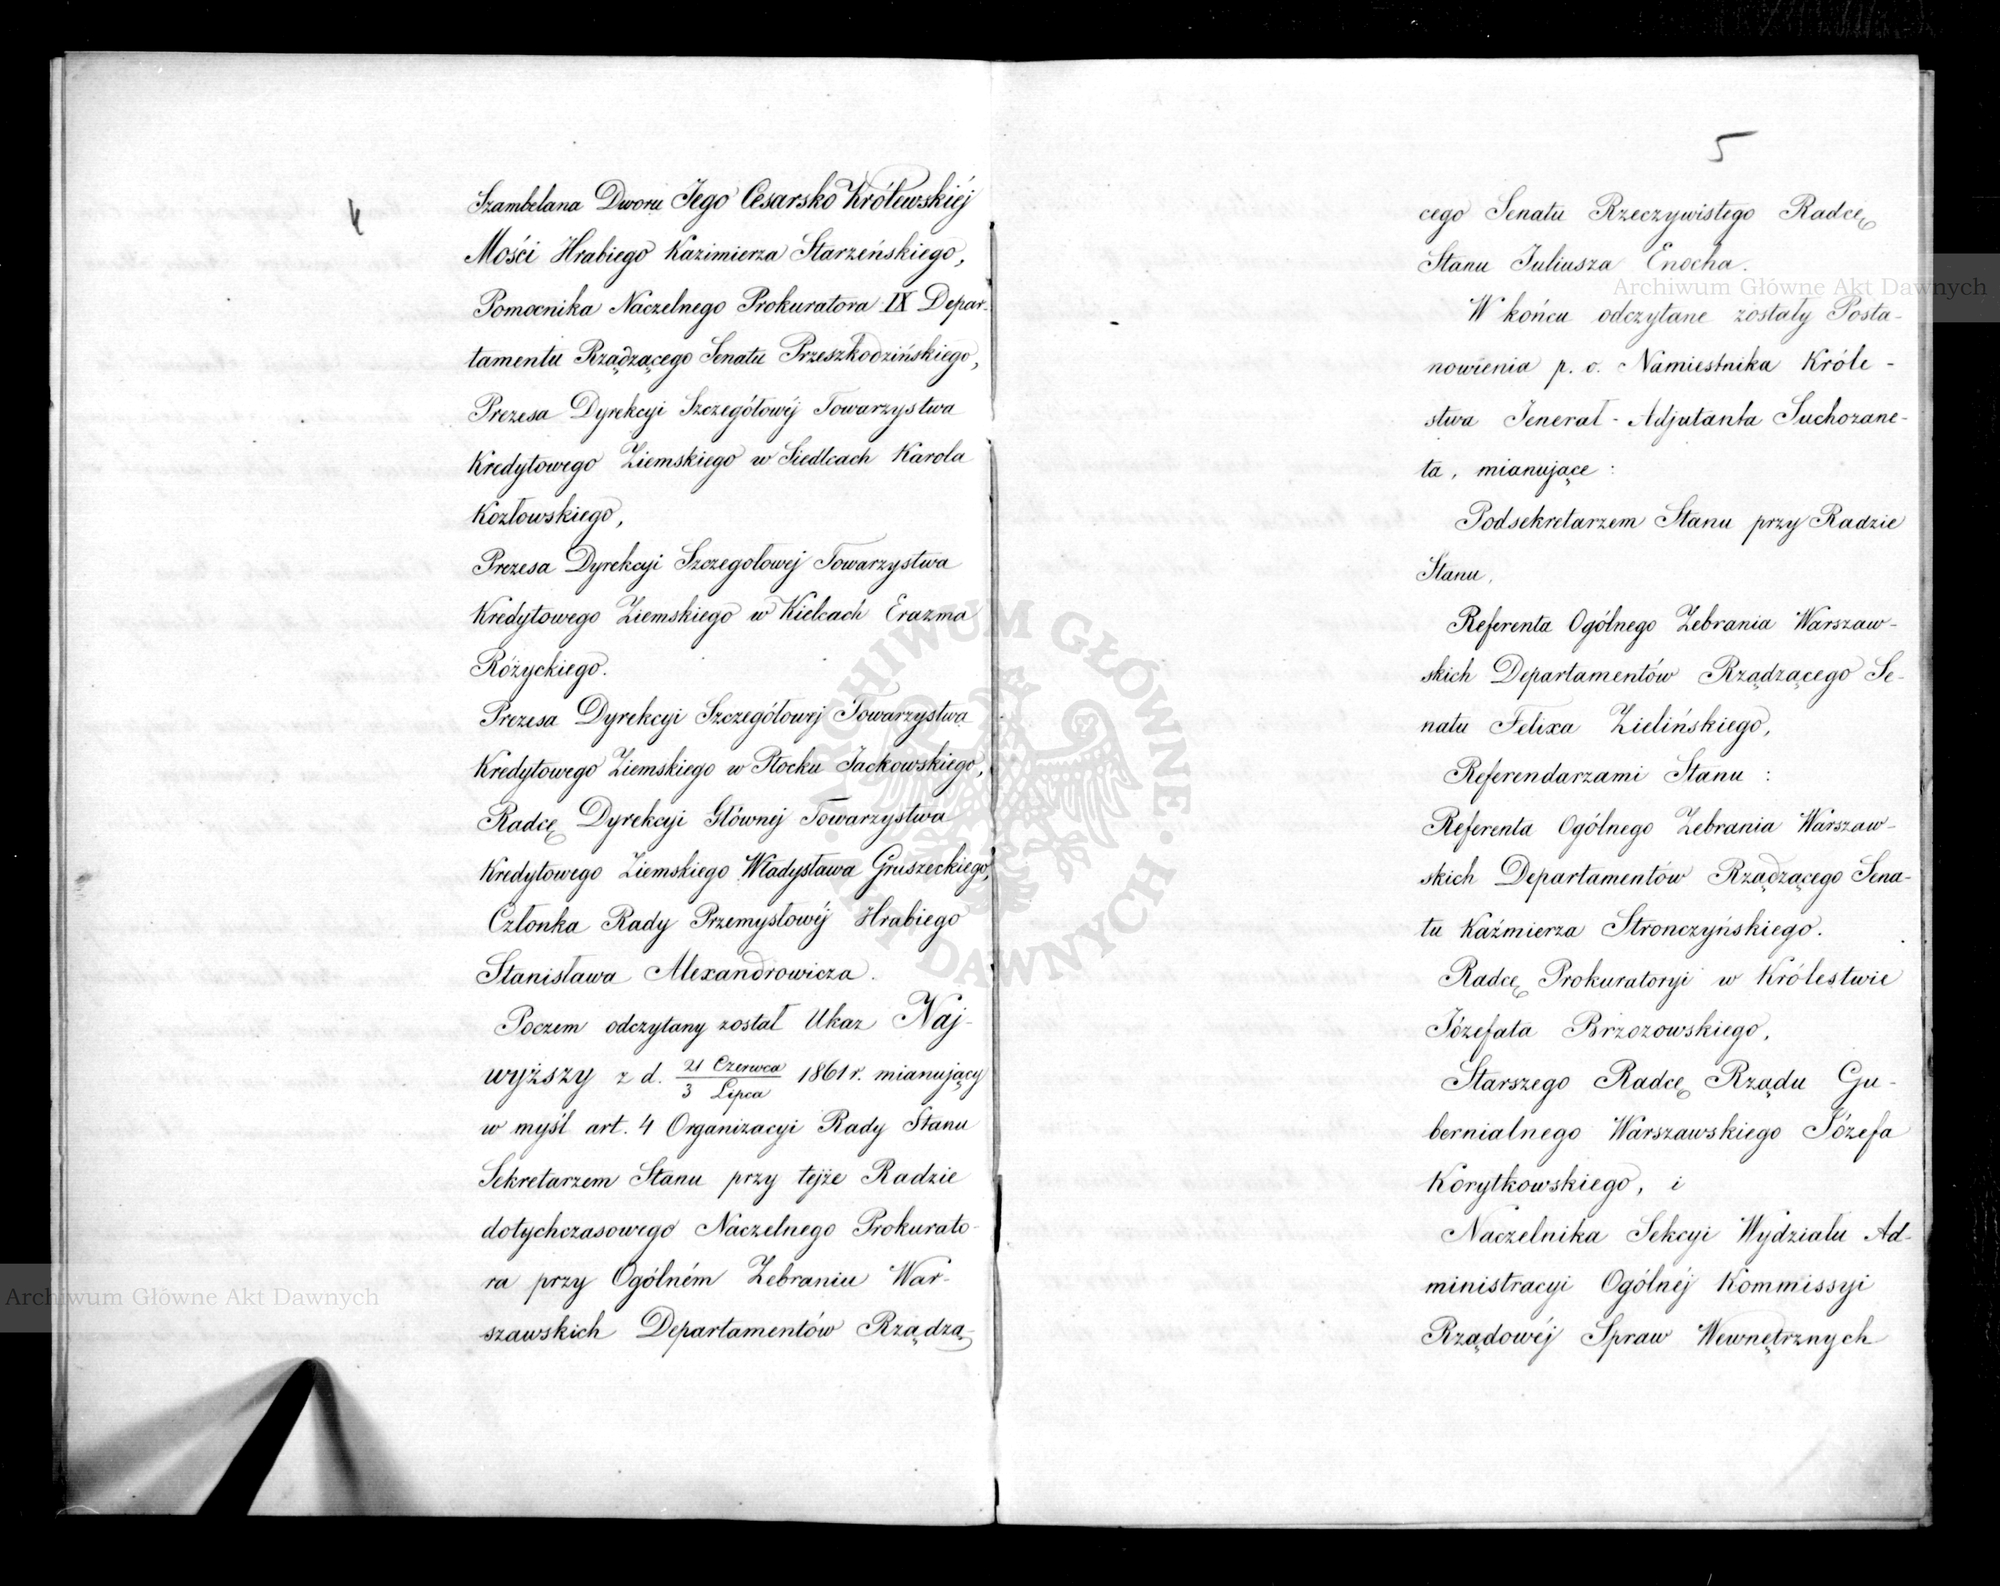 4
Szambelana Dworu Jego Cesarsko Królewskiéj
Mości Hrabiego Kazimierza Starzeńskiego,
Pomocnika Naczelnego Prokuratora IX Depar-
tamentu Rządzącego Senatu Przeszkodzińskiego,
Prezesa Dyrekcyi Szczegółowéj Towarzystwa
Kredytowego Ziemskiego w Siedlcach Karola
Kozłowskiego,
Prezesa Dyrekcyi Szczegołowej Towarzystwa
Kredytowego Ziemskiego w Kielcach Erazma
Różyckiego.
Prezesa Dyrekcyi Szczegółowej Towarzystwa
Kredytowego Ziemskiego w Płocku Jackowskiego,
Radcę Dyrekcyi Głównej Towarzystwa
Kredytowego Ziemskiego Władysława Gruszeckiego,
Członka Rady Przemysłowéj Hrabiego
Stanisława Alexandrowicza.
Poczem odczytany został Ukaz Naj-
wyższy z d. 21 Czerwca / 3 Lipca 1861 r. mianujący
w myśl art. 4 Organizacyi Rady Stanu
Sekretarzem Stanu przy tejże Radzie
dotychczasowego Naczelnego Prokurato-
ra przy Ogólném Zebraniu War-
szawskich Departamentów Rządzą-
5
cego Senatu Rzeczywistego Radcę
Stanu Juliusza Enocha.
W końcu odczytane zostały Posta-
nowienia p. o. Namiestnika Króle-
stwa Jenerał-Adjutanta Suchozane-
ta, mianujące:
Podsekretarzem Stanu przy Radzie
Stanu,
Referenta Ogólnego Zebrania Warszaw-
skich Departamentów Rządzącego Se-
natu Felixa Zielińskiego,
Referendarzami Stanu:
Referenta Ogólnego Zebrania Warszaw-
skich Departamentów Rządzącego Sena-
tu Kaźmierza Stronczyńskiego.
Radcę Prokuratoryi w Królestwie
Józefata Brzozowskiego,
Starszego Radcę Rządu Gu-
bernialnego Warszawskiego Józefa
Korytkowskiego, i
Naczelnika Sekcyi Wydziału Ad-
ministracyi Ogólnéj Kommissyi
Rządowéj Spraw Wewnętrznych
Archiwum Główne Akt Dawnych
Archiwum Główne Akt Dawnych
ARCHIWUM GŁÓWNE · AKT DAWNYCH ·